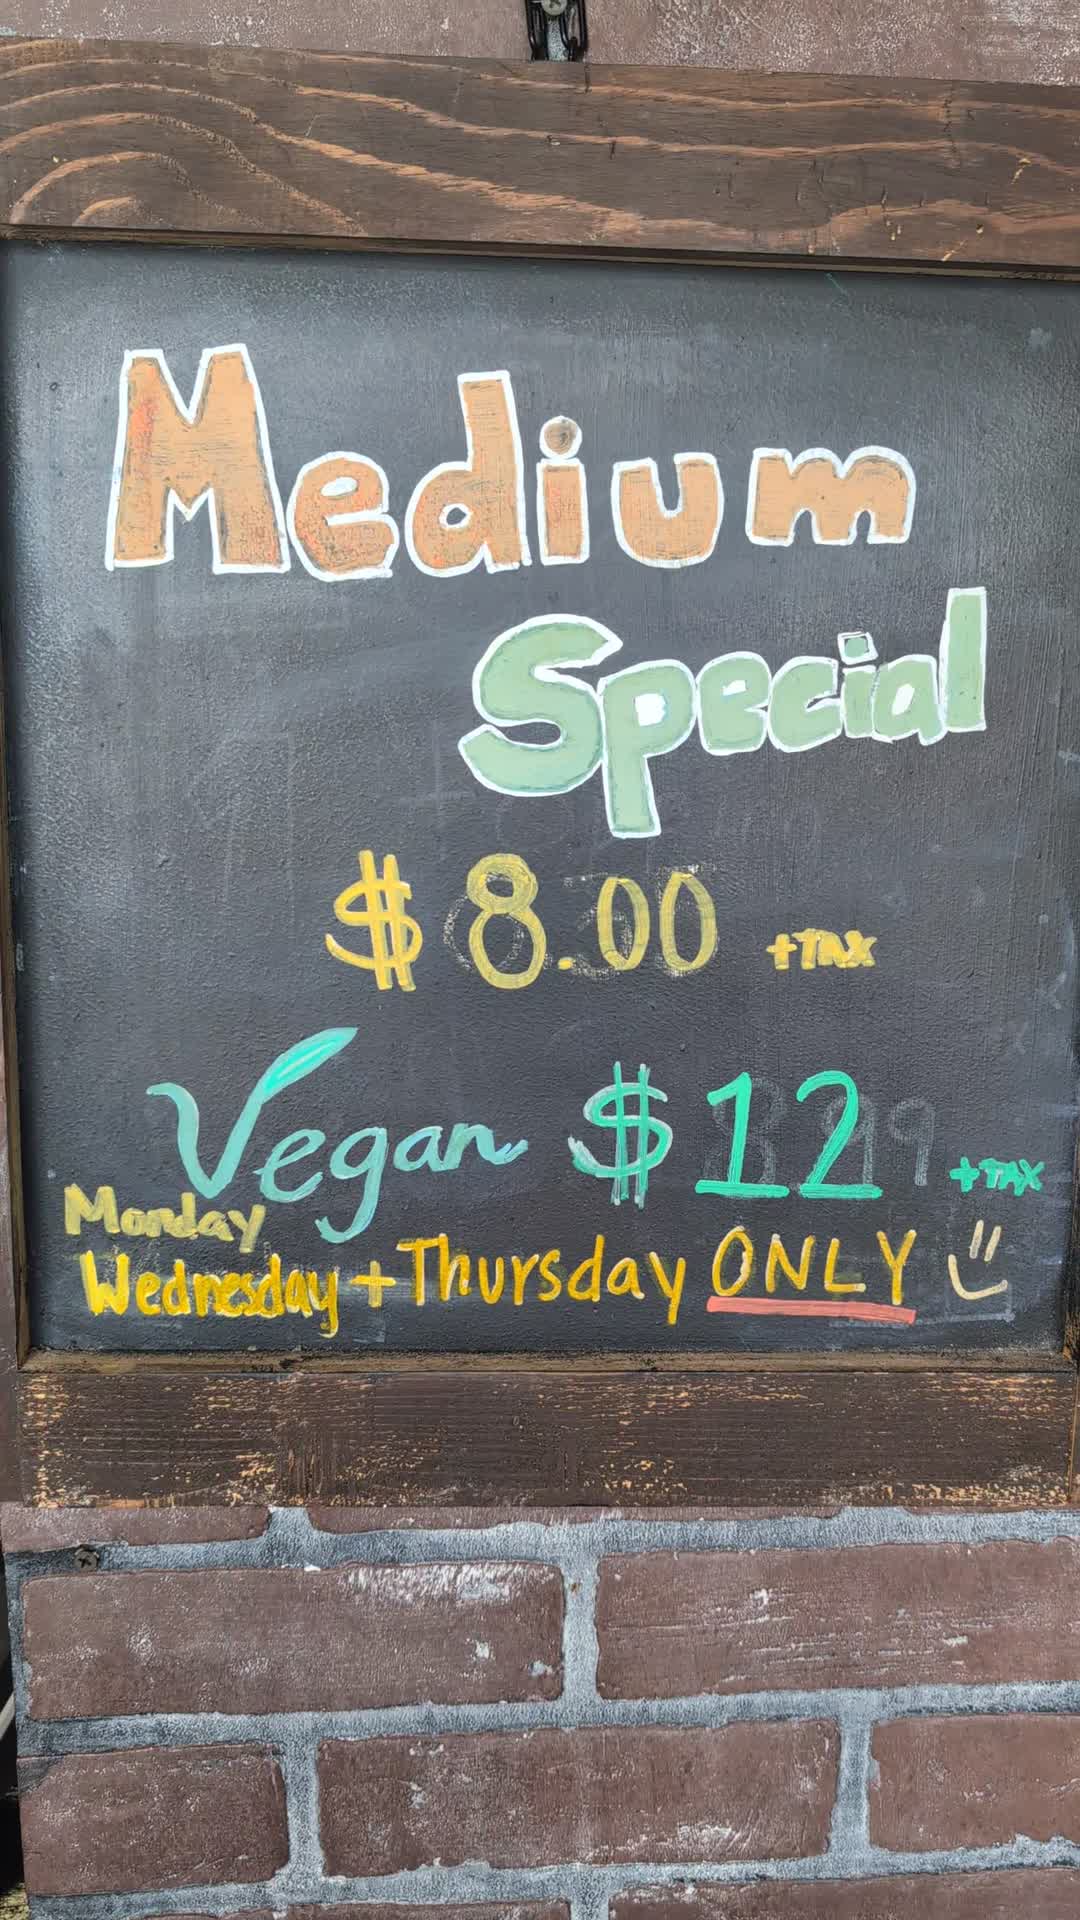 Medium
Special
$8.00 +TAX
Vegan $12 +TAX
Monday
Wednesday + Thursday ONLY